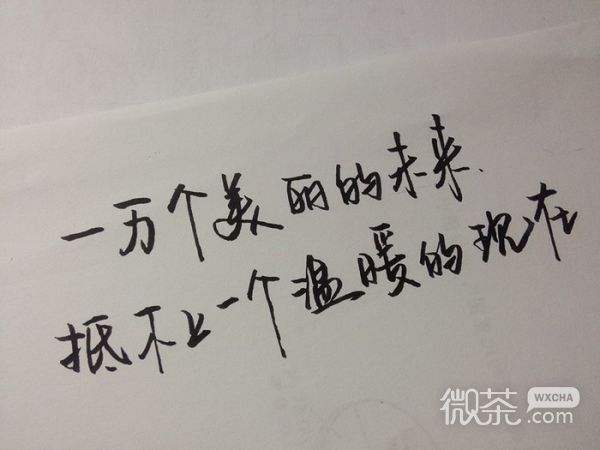 一万个美丽的未来.
抵不上一个温暖的现在
微茶 WXCHA .com